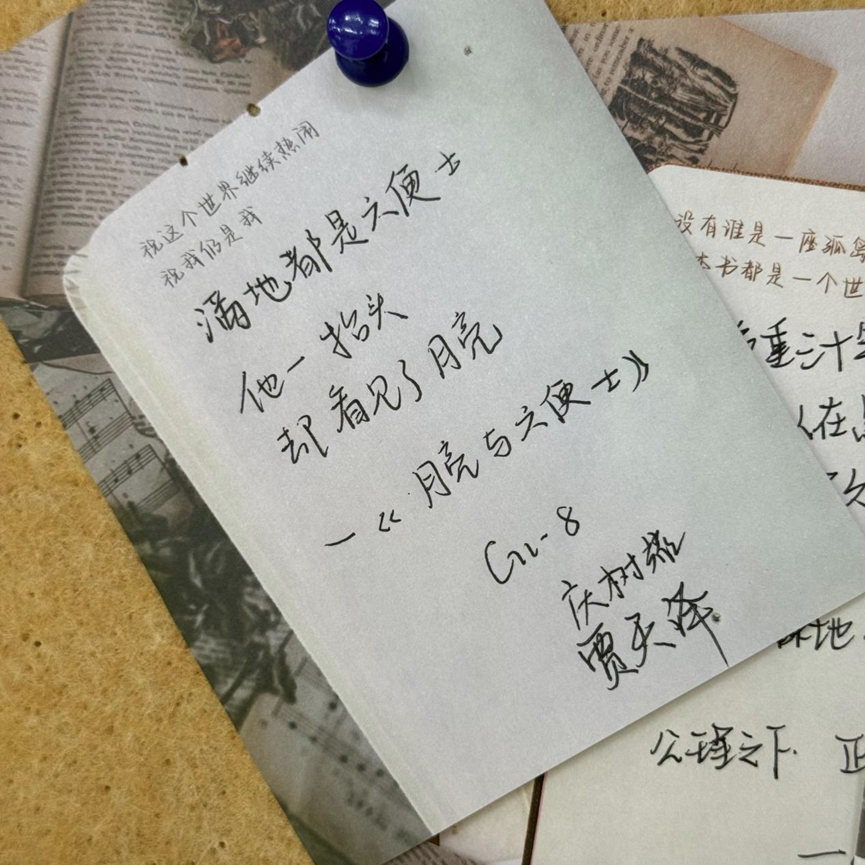 祝这个世界继续热闹
祝我仍是我
满地都是六便士
他一抬头
却看见了月亮
一《月亮与六便士》
G12-8
庆树
贾天泽
没有谁是一座孤岛
本书都是一个世
重二十年
在
公瑾之下 正
一